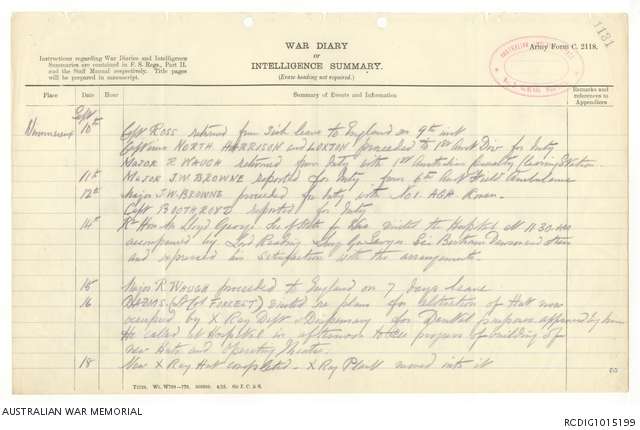 1131
WAR DIARY
OR
INTELLIGENCE SUMMARY.
(Erase heading not required.)
Army Form C. 2118.
Instructions regarding War Diaries and Intelligence
Summaries are contained in F. S. Regs., Part II.
and the Staff Manual respectively. Title pages
will be prepared in manuscript.
Place Date Hour Summary of Events and Information Remarks and references to Appendices
Sept
10th Capt ROSS returned from Sick leave to England on 9th inst
Captains NORTH HARRISON and LOXTON proceeded to 1st Aust Div for duty
MAJOR R WAUGH returned from duty with 1st Australian Casualty Clearing Station
11th MAJOR J.W. BROWNE reported for duty from 6th Aust Field Ambulance
12th Major J.W. BROWNE proceeded for duty with No 1 AGH Rouen
Capt BOOTHROYD reported for duty
14th Rt Hon Mr Lloyd George Sec of State for War visited the Hospital at 11.30 am
accompanied by Lord Reading Sir Bertram Dawson and others
and expressed his satisfaction with the arrangements
15 Major R WAUGH proceeded to England on 7 days leave
16 (Lt Col FIRCEST) visited re plans for alteration of Hut now
occupied by X Ray Dept & Dispensary for Dental purposes approved by him
He called at Hospital in afternoon to see progress of building of
new Huts and Operating Theatre.
18 New X Ray Hut completed - X Ray Plant moved into it
T2134. Wt. W708—776. 500000. 4/15. Sir J. C. & S.
AUSTRALIAN WAR MEMORIAL
RCDIG1015199